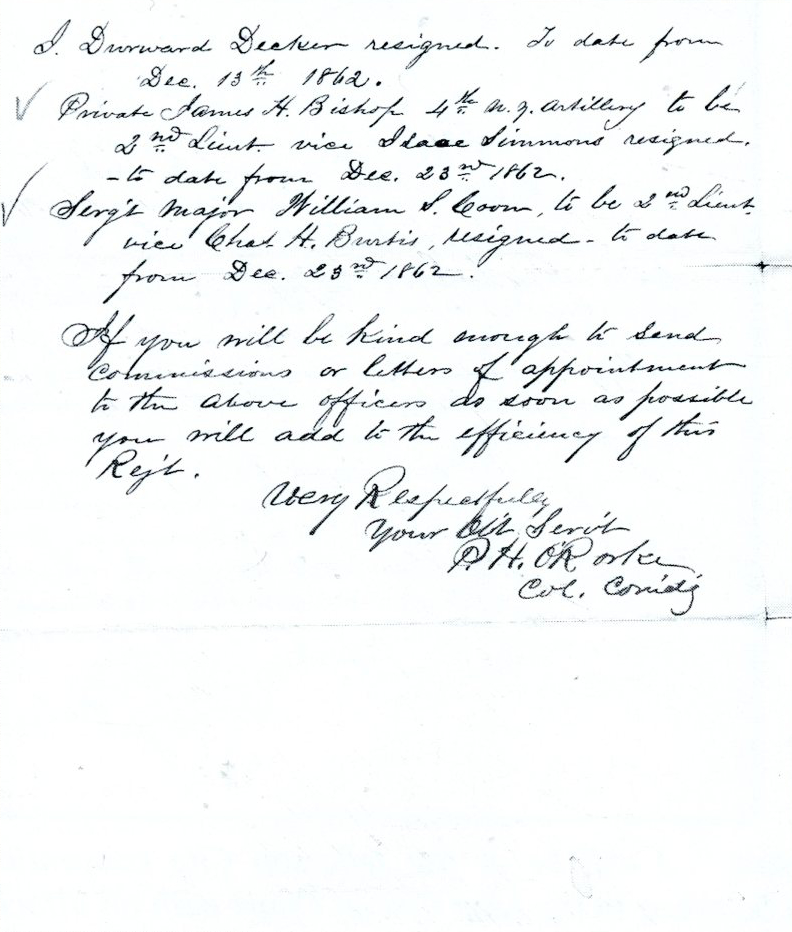 I. Durward Decker resigned. To date from
Dec. 13th 1862.
Private James H. Bishop 4th N.Y. Artillery to be
2nd Lieut. vice Isaac Simmons resigned.
- to date from Dec. 23rd 1862.
Serg't Major William S. Coon, to be 2nd Lieut.
vice Chas. H. Burtis, resigned - to date
from Dec. 23rd 1862.
If you will be kind enough to send
commissions or letters of appointment
to the above officers as soon as possible
you will add to the efficiency of this
Regt.
Very Respectfully
Your Obt Servt
P. H. O'Rorke
Col. Comd'g